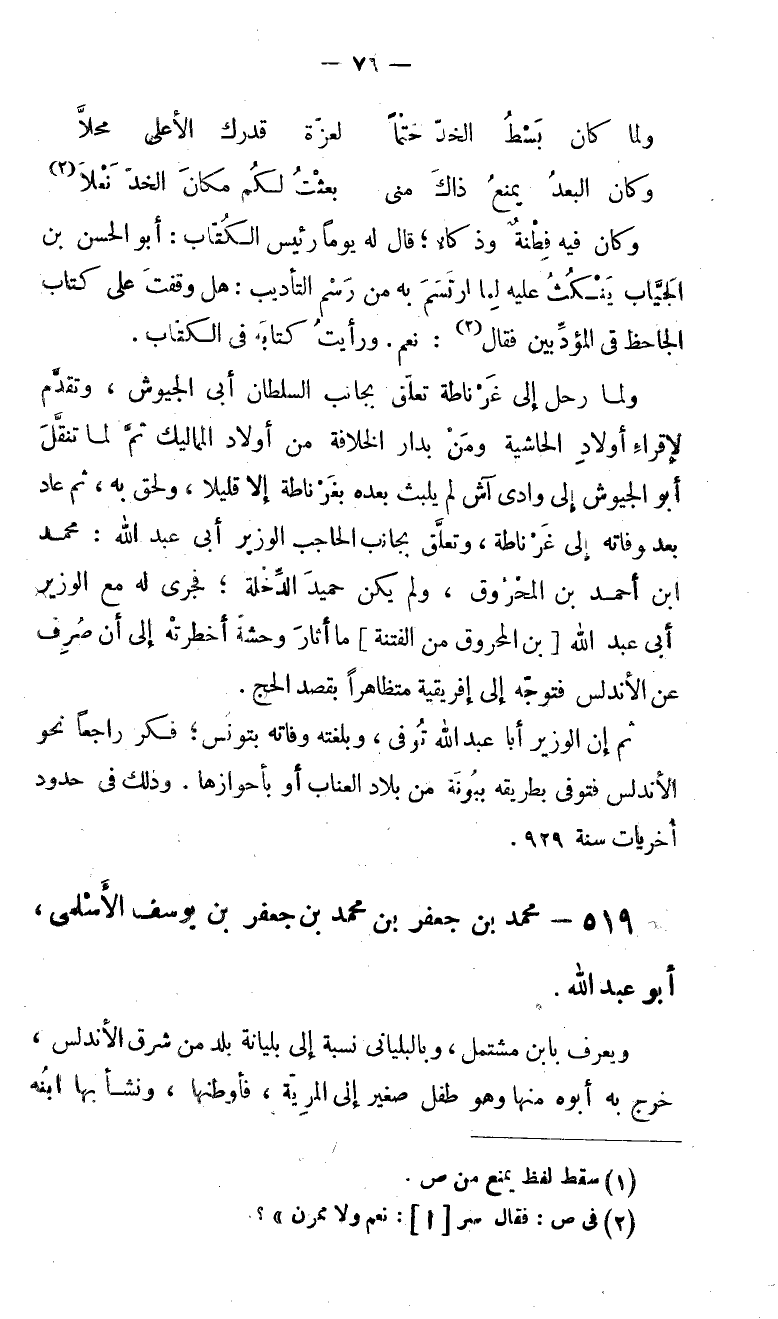 — ٧٦ —
ولما كان بَسْطُ الخدّ حَتْماً لعزّة قدرك الأعلى محلاَّ
وكان البعدُ يمنعُ ذاكَ منى بعثتُ لكُم مكانَ الخدّ نَعْلاَ (٢)
وكان فيه فِطْنةٌ وذكاء ؛ قال له يوماً رئيس الكُتّاب : أبو الحسن بن
الجَيَّاب يَنْكُتُ عليه لِما ارتَسَمَ به من رَسْم التأديب : هل وقفتَ على كتاب
الجاحظ فى المؤدِّبين فقال (٢) : نعم . ورأيتُ كتابَه فى الكتّاب .
ولما رحل إلى غَرْناطة تعلّق بجانب السلطان أبى الجيوش ، وتقدَّم
لإقراءِ أولادِ الحاشية ومَنْ بدار الخلافة من أولاد المماليك ثمَّ لما تنقَّلَ
أبو الجيوش إلى وادى آش لم يلبث بعده بغَرْناطة إلا قليلا ، ولحق به ، ثم عاد
بعد وفاته إلى غَرْناطة ، وتعلَّق بجانب الحاجب الوزير أبى عبد الله : محمد
ابن أحمد بن المحْرُوق ، ولم يكن حميدَ الدِّخْلة ؛ فجرى له مع الوزير
أبى عبد الله [ بن المحروق من الفتنة ] ما أثارَ وحشةً أخطرتْه إلى أن صُرِف
عن الأندلس فتوجّه إلى إفريقية متظاهراً بقصد الحج .
ثم إن الوزير أبا عبد الله تُوفى ، وبلغته وفاته بتونس ؛ فكر راجعاً نحو
الأندلس فتوفى بطريقه ببُونَة من بلاد العناب أو بأحوازها . وذلك فى حدود
أخريات سنة ٩٢٩ .
٥١٩ — محمد بن جعفر بن محمد بن جعفر بن يوسف الأَسْلمى ،
أبو عبد الله .
ويعرف بابن مشتمل ، وبالبليانى نسبة إلى بليانة بلد من شرق الأندلس ،
خرج به أبوه منها وهو طفل صغير إلى المريّة ، فأوطنها ، ونشأ بها ابنُه
(١) سقط لفظ يمنع من ص .
(٢) فى ص : فقال سر [ ا ] : نعم ولا ممرن » ؟ .